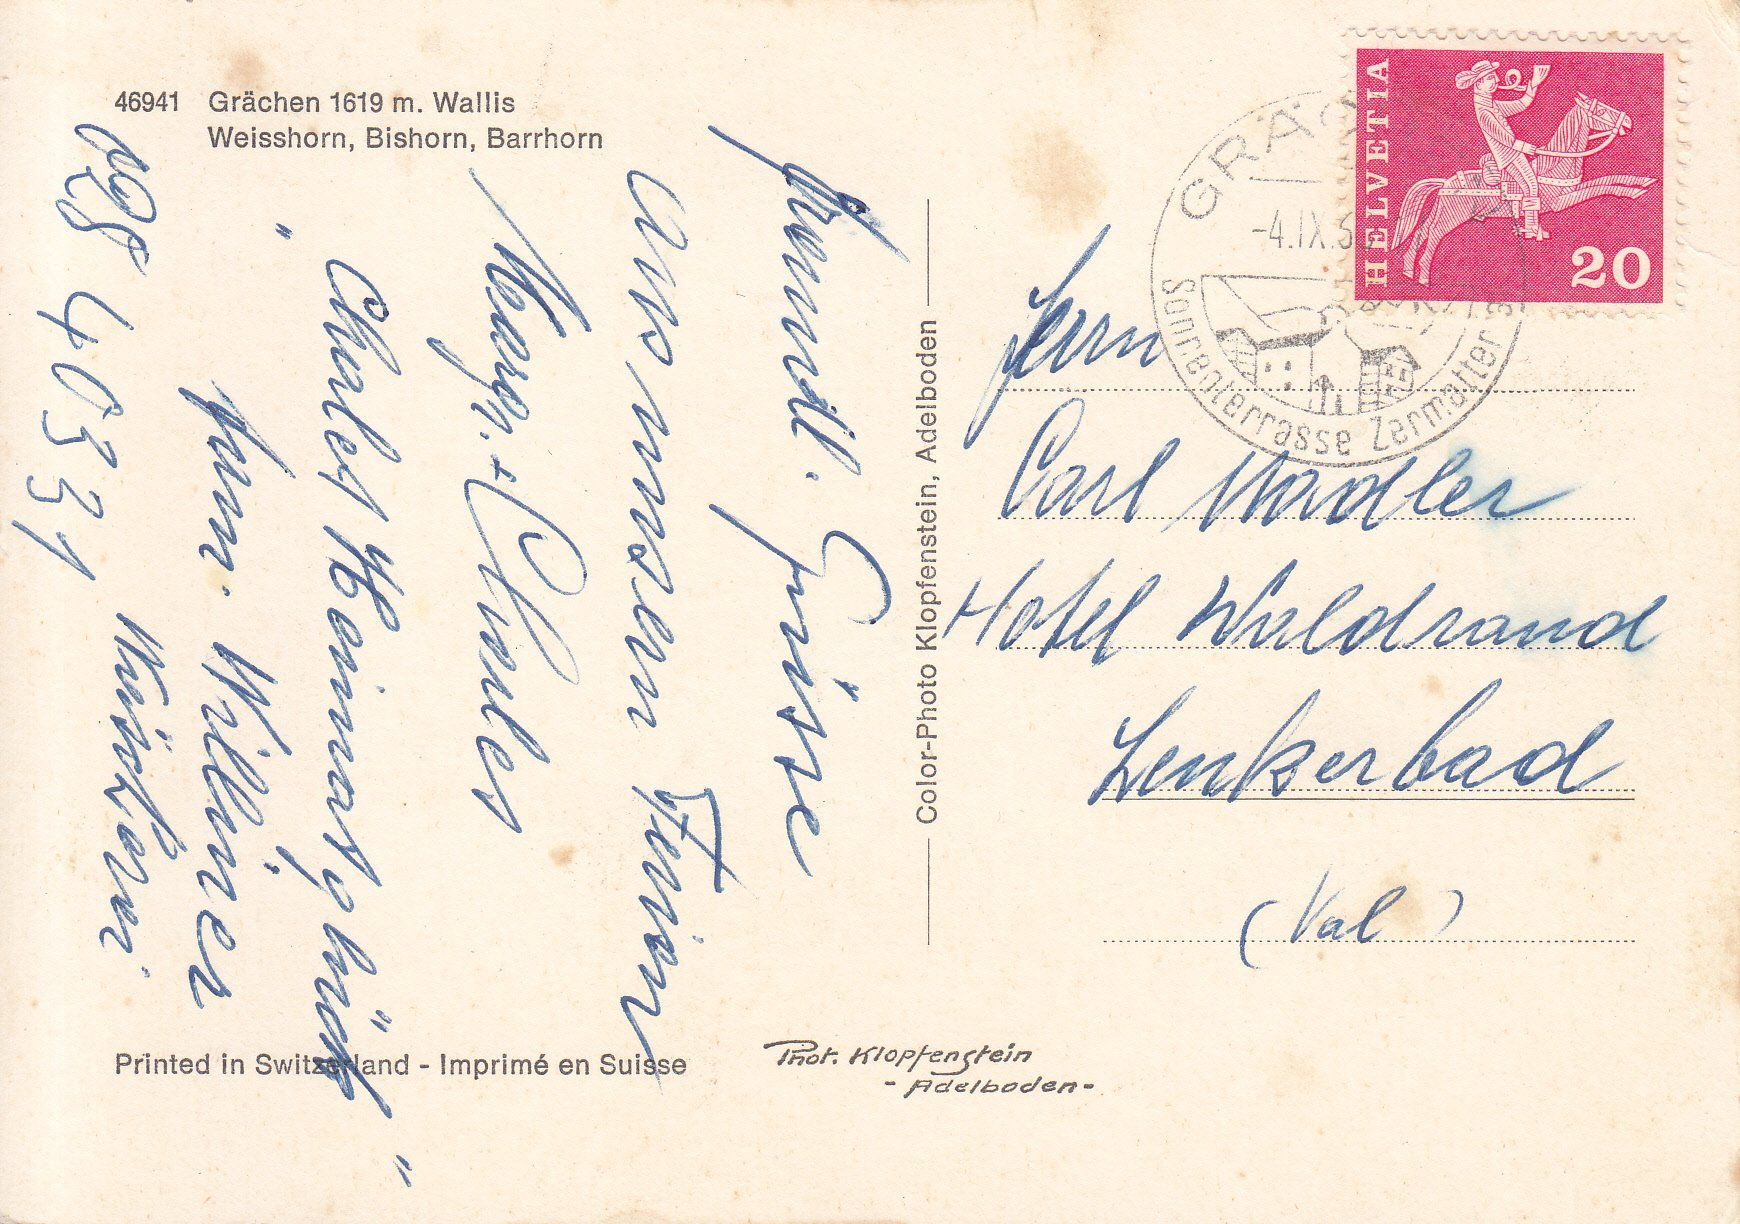 46941 Grächen 1619 m. Wallis
Weisshorn, Bishorn, Barrhorn
Freundl. Grüsse
aus unsern Ferien
Marg. + Charles
"Chalet Heimatglück"
Fam. Williner
028 4 03 31
Color-Photo Klopfenstein, Adelboden
HELVETIA
20
GRÄC
-4.IX.6
Sonnenterrasse Zermatter
Herrn
Carl Stadler
Hotel Waldrand
Leukerbad
(Val)
Printed in Switzerland - Imprimé en Suisse
Phot. Klopfenstein
- Adelboden -